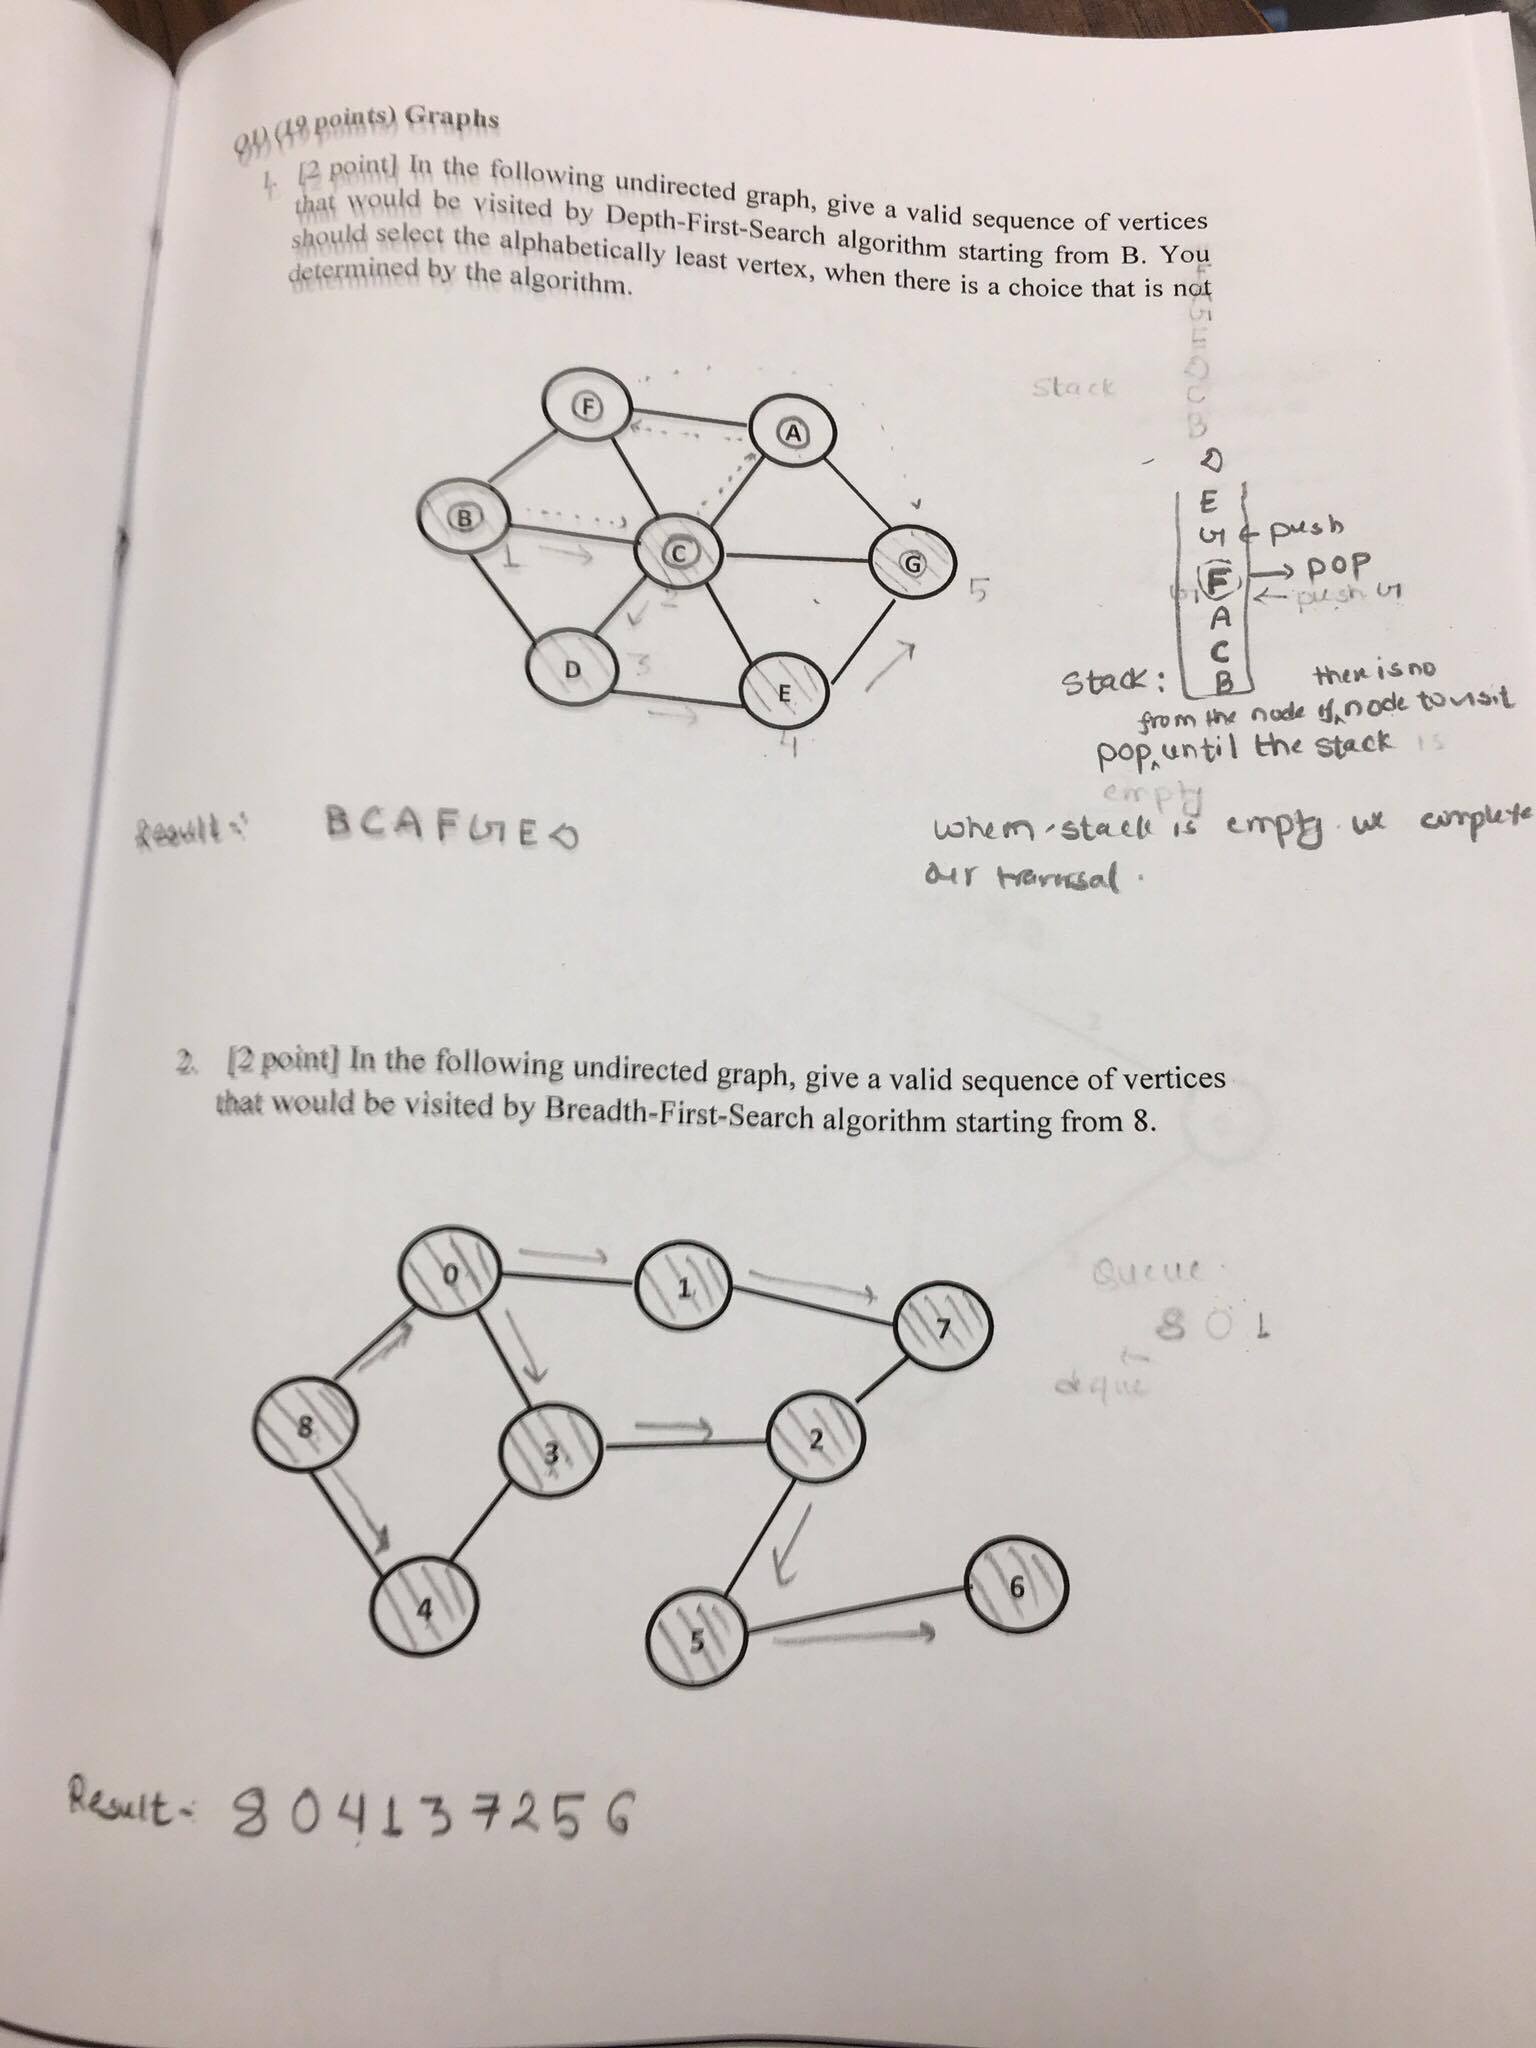 Q1) (19 points) Graphs
1. [2 point] In the following undirected graph, give a valid sequence of vertices
that would be visited by Depth-First-Search algorithm starting from B. You
should select the alphabetically least vertex, when there is a choice that is not
determined by the algorithm.
Stack
F
A
B
C
G
D
E
1
2
3
4
5
D
E
G ← push
F → pop
← push G
A
C
B
Stack:
there is no
from the node if node to visit
pop until the stack is
empty
Result:- B C A F G E D
when stack is empty we complete
our traversal.
2. [2 point] In the following undirected graph, give a valid sequence of vertices
that would be visited by Breadth-First-Search algorithm starting from 8.
0
1
7
8
3
2
4
5
6
Queue
8 0 1
←
deque
Result- 8 0 4 1 3 7 2 5 6